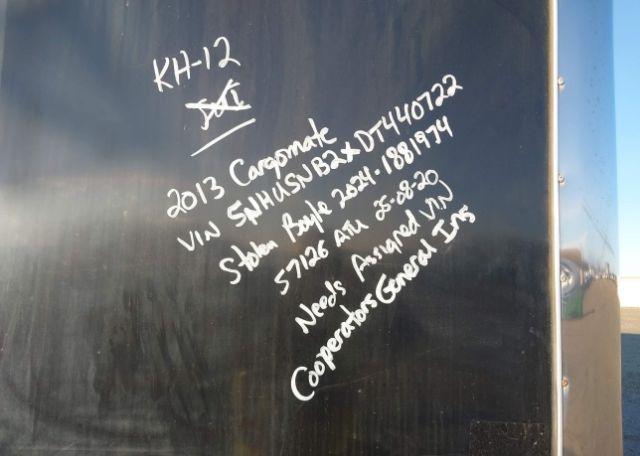 KH-12
2013 Cargomate
VIN 5NHUSNB2XDT440722
Stolen Boyle 2024-1881974
57126 ATU 25-08-20
Needs Assigned VIN
Cooperators General Ins